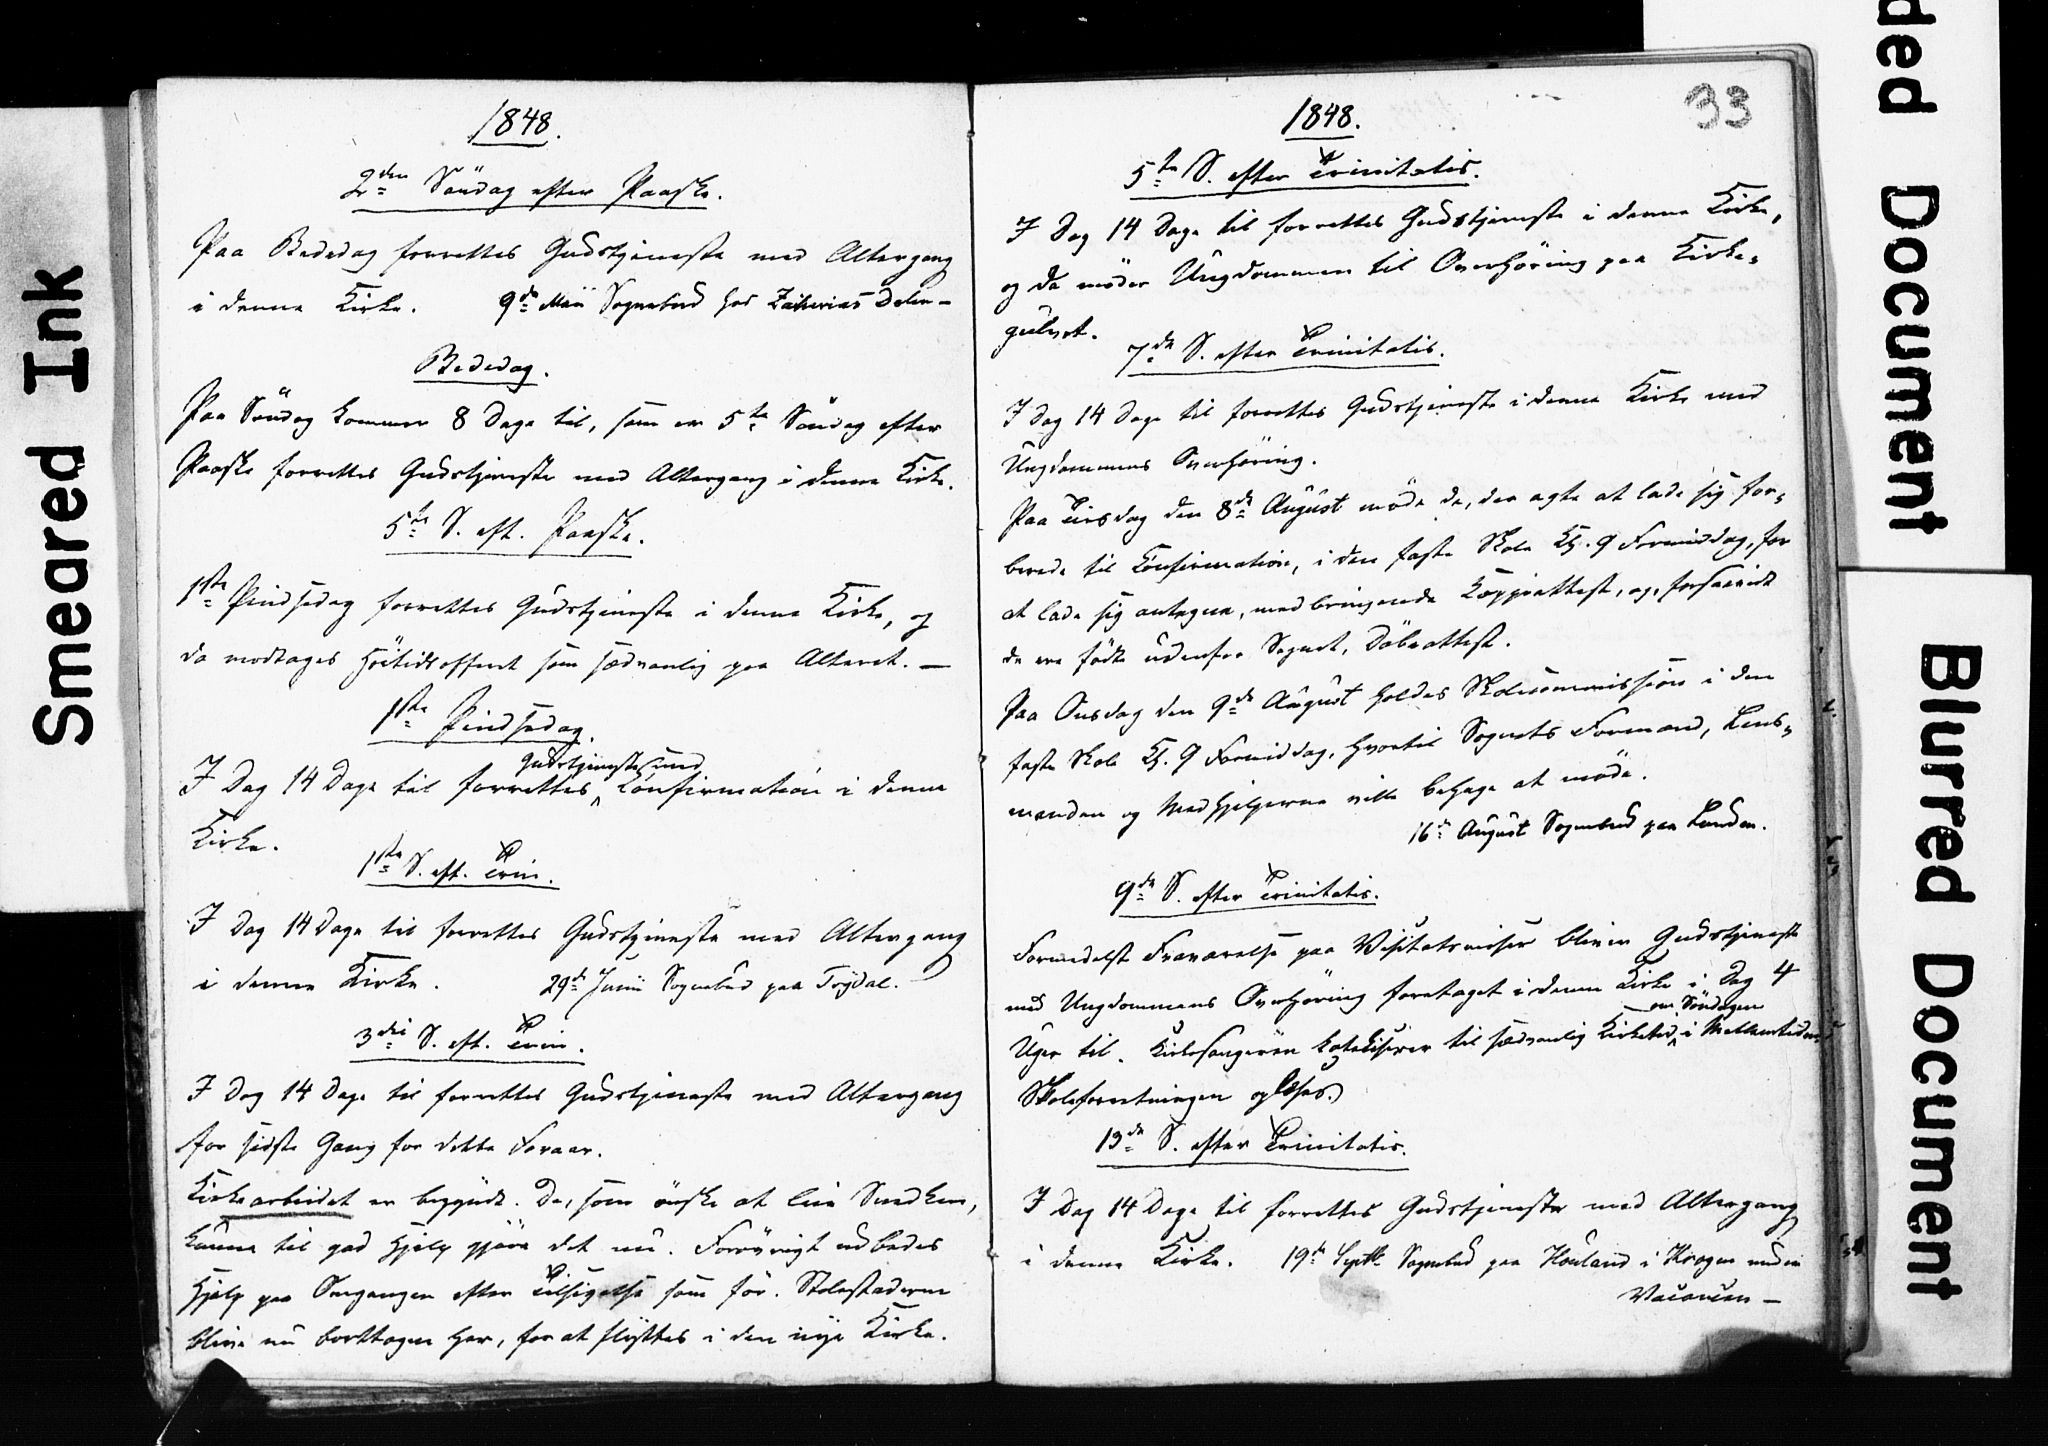 1848.
2den Söndag efter Paaske.
Paa Bededag forrettes Gudstjeneste med Altergang
i denne Kirke. 9de Mai Sognebud hos Zakarias Dalen-
Bededag.
Paa Söndag kommer 8 Dage til, som er 5te Söndag efter
Paaske forrettes Gudstjeneste med Altergang i denne Kirke.
5te S. eft. Paaske.
1ste Pindsedag forrettes Gudstjeneste i denne Kirke, og
da modtages Höitidsofferet som sædvanlig paa Alteret. —
1ste Pindsedag.
Gudstjeneste med
I Dag 14 Dage til forrettes Confirmation i denne
Kirke.
1ste S. eft. Trin.
I Dag 14 Dage til forrettes Gudstjeneste med Altergang
i denne Kirke. 29de Junii Sognebud paa Trydal.
3die S. eft. Trin.
I Dag 14 Dage til forrettes Gudstjeneste med Altergang
for sidste Gang for dette Foraar.
Kirkearbeidet er begyndt. De, som önske at leie Snedkere,
kunne til god Hjelp gjöre det nu. Forövrigt udbedes
Hjelp paa Omgangen efter Tilsigelse som för. Stolestaderne
blive nu borttagne her, for at flyttes i den nye Kirke.
33
1848.
5te S. efter Trinitatis.
I Dag 14 Dage til forrettes Gudstjeneste i denne Kirke,
og da möder Ungdommen til Overhöring paa Kirke-
gulvet.
7de S. efter Trinitatis.
I Dag 14 Dage til forrettes Gudstjeneste i denne Kirke med
Ungdommens Overhöring.
Paa Tirsdag den 8de August möde de, der agte at lade sig for-
berede til Confirmation, i den faste Skole Kl. 9 Formiddag, for
at lade sig antegne, medbringende Koppeattest, og, forsaavidt
de ere födte udenfor Sognet, Döbeattest.
Paa Onsdag den 9de August holdes Skolecommission i den
faste Skole Kl. 9 Formiddag, hvortil Sognets Formænd, Lens-
manden og Medhjelperne ville behage at möde.
16de August Sognebud paa Landen.
9de S. efter Trinitatis.
Formedelst Fraværelse paa Visitatsreiser bliver Gudstjeneste
med Ungdommens Overhöring foretaget i denne Kirke i Dag 4
om Söndagen
Uger til. Kirkesangeren katekiserer til sædvanlig Kirketid i Mellemtiden
Skoleforretningen oplæses.)
13de S. efter Trinitatis.
I Dag 14 Dage til forrettes Gudstjeneste med Altergang
i denne Kirke. 19de Septbr Sognebud paa Houland i Krogen under
Vacancen —
Smeared Ink
ded Document
Blurred Document